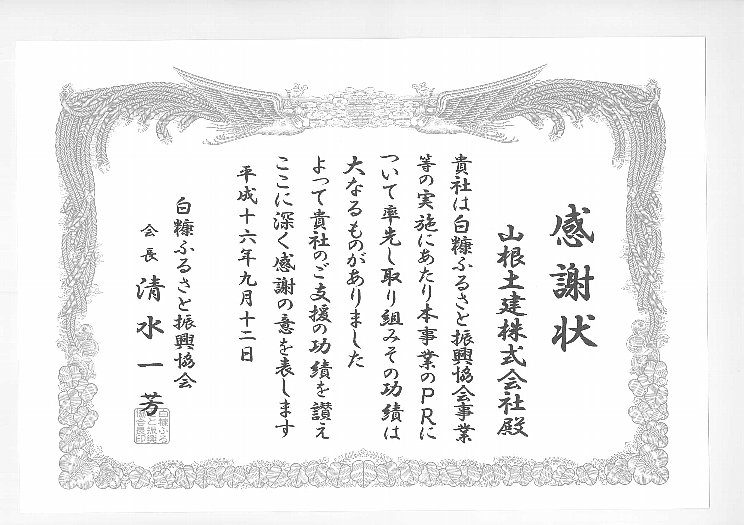 感謝状
山根土建株式会社殿
貴社は白糠ふるさと振興協会事業
等の実施にあたり本事業のPRに
ついて率先し取り組みその功績は
大なるものがありました
よって貴社のご支援の功績を讃え
ここに深く感謝の意を表します
平成十六年九月十二日
白糠ふるさと振興協会
会長 清水一芳